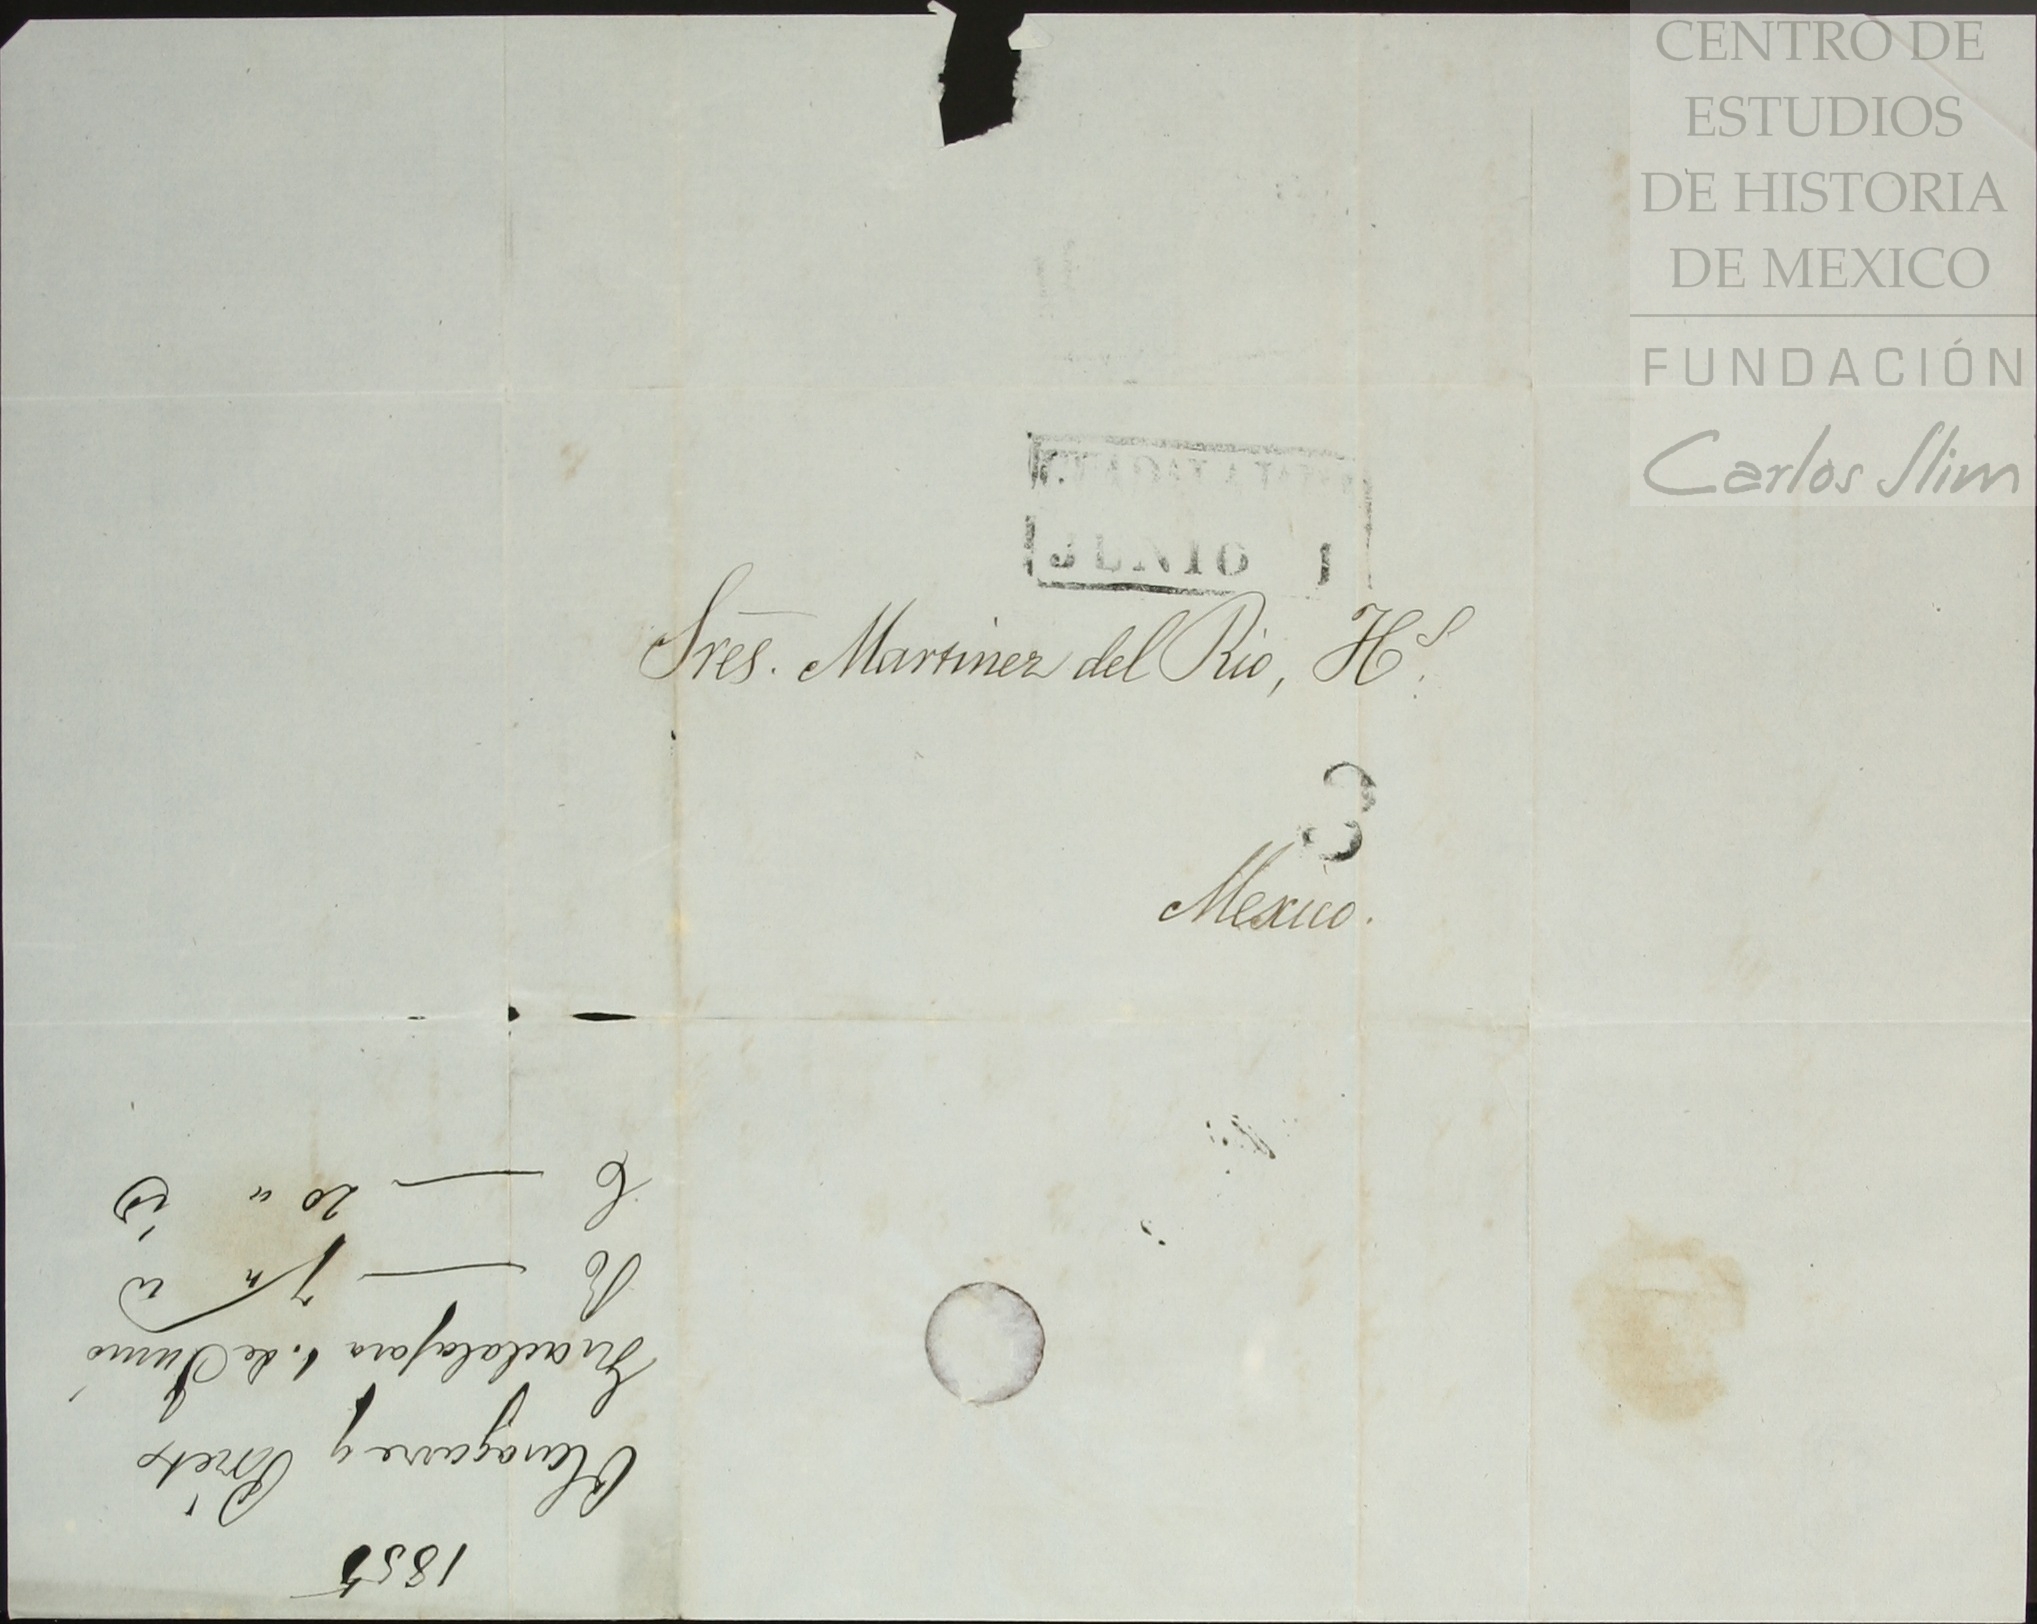 CENTRO DE
ESTUDIOS
DE HISTORIA
DE MEXICO
FUNDACIÓN
Carlos Slim
GUADALAJARA
JUNIO 1
Sres. Martinez del Rio, Hs.
3
Mexico.
1855
Olasagarre y Prieto
Guadalajara 1. de Junio
R — 7 " "
C — 20 " "